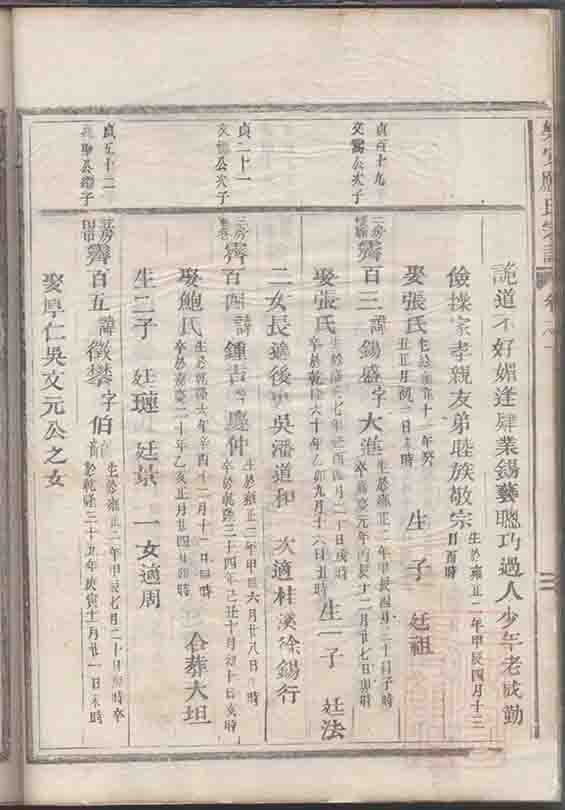 詭道不好媚逢肆業錫藝聰巧過人少年老成勤
儉操家孝親友弟睦族敬宗 生於雍正二年甲辰四月十三日酉時
娶張氏 生於雍正十一年癸丑正月初二日未時 生一子 廷祖
貞百十九
公次子
三房
霽百三諱錫盛字大進 生於雍正二年甲辰四月二十日子時
卒嘉慶元年丙辰十二月廿七日卯時
娶張氏 生於乾隆七年壬酉月二十日戌時
卒於乾隆六十年乙卯九月十六日丑時 生一子 廷法
二女長適後吳潘道和 次適桂溪徐錫行
貞二十一
公次子
三房
霽百四諱鍾吉字慶仲 生於雍正三年月廿八日時
卒於乾隆三十四年己丑十月初十日亥時
娶鮑氏 生於乾隆六年辛酉十二月十二日時
卒於嘉慶二十年乙亥正月廿四日卯時 合葬大坦
生二子 廷璉 廷景 一女適周
貞五十二
公子
霽百五諱徵攀字伯 生於雍正二年甲辰七月二十日時卒
於乾隆三十五年庚寅十月廿一日未時
娶厚仁吳文元公之女